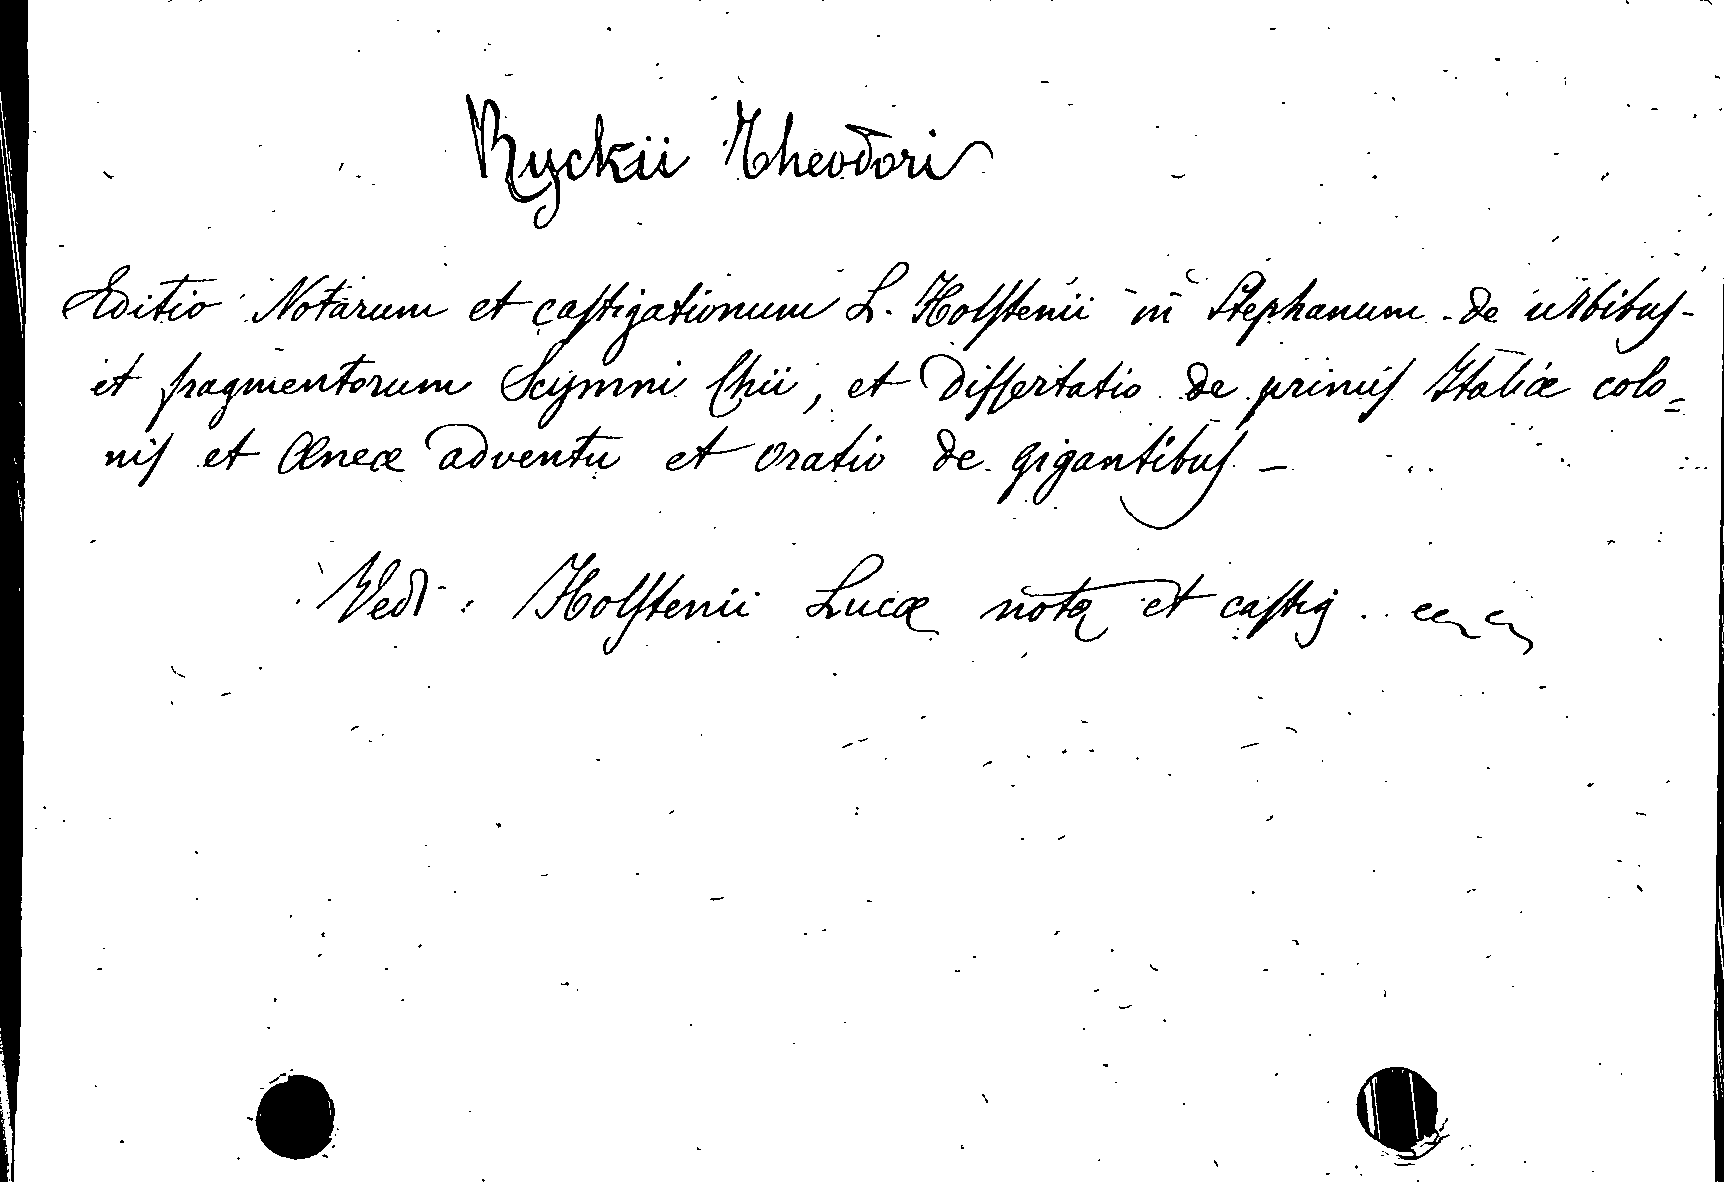 Ryckii Theodori
Editio Notarum et castigationum L. Holstenii in Stephanum de urbibus -
et fragmentorum Scymni Chii, et Dissertatio de primis Italiæ colo=
nis et Æneæ adventu et oratio de gigantibus -
Vedi: Holstenii Lucæ notæ et castig.